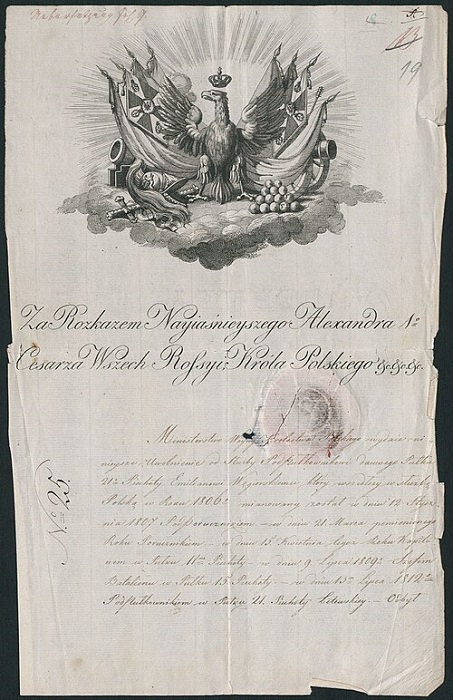 19
Za Rozkazem Nayiaśnieyszego Alexandra 1o
Cesarza Wszech Rossyi, Króla Polskiego &c. &c. &c.
No 25.
Ministerstwo Woyny Królestwa Polskiego wydaie ni-
nieysze Uwolnienie od Służby Podpułkownikowi dawnego Pułku
21o Piechoty który wszedłszy w służbę
Polską w Roku 1806o mianowany został w dniu 12 Stycz-
nia 1807 Podporucznikiem – w dniu 21 Marca pomienionego
Roku Porucznikiem – w dniu 13 Kwietnia tegoż Roku Kapita-
nem w Pułku 11m Piechoty – w dniu 9 Lipca 1809o Szefem
Batalionu w Pułku 15 Piechoty – w dniu 13m Lipca 1812o
Podpułkownikiem w Pułku 21. Piechoty Litewskiey – Odbył